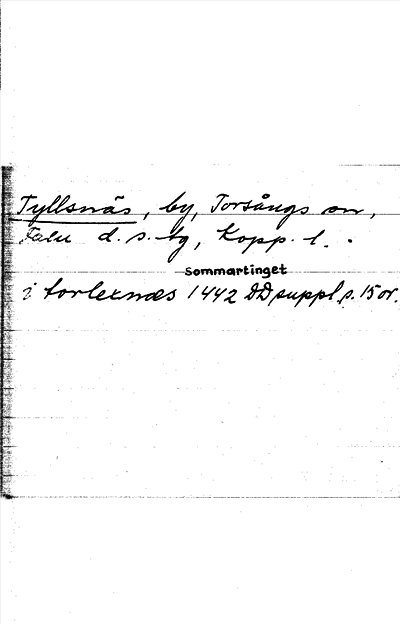 Tyllsnäs, by, Torsångs sn,
Falu d. s. bg, Kopp. l.
Sommartinget
i torlexnæs 1442 DD suppl s. 15 or.